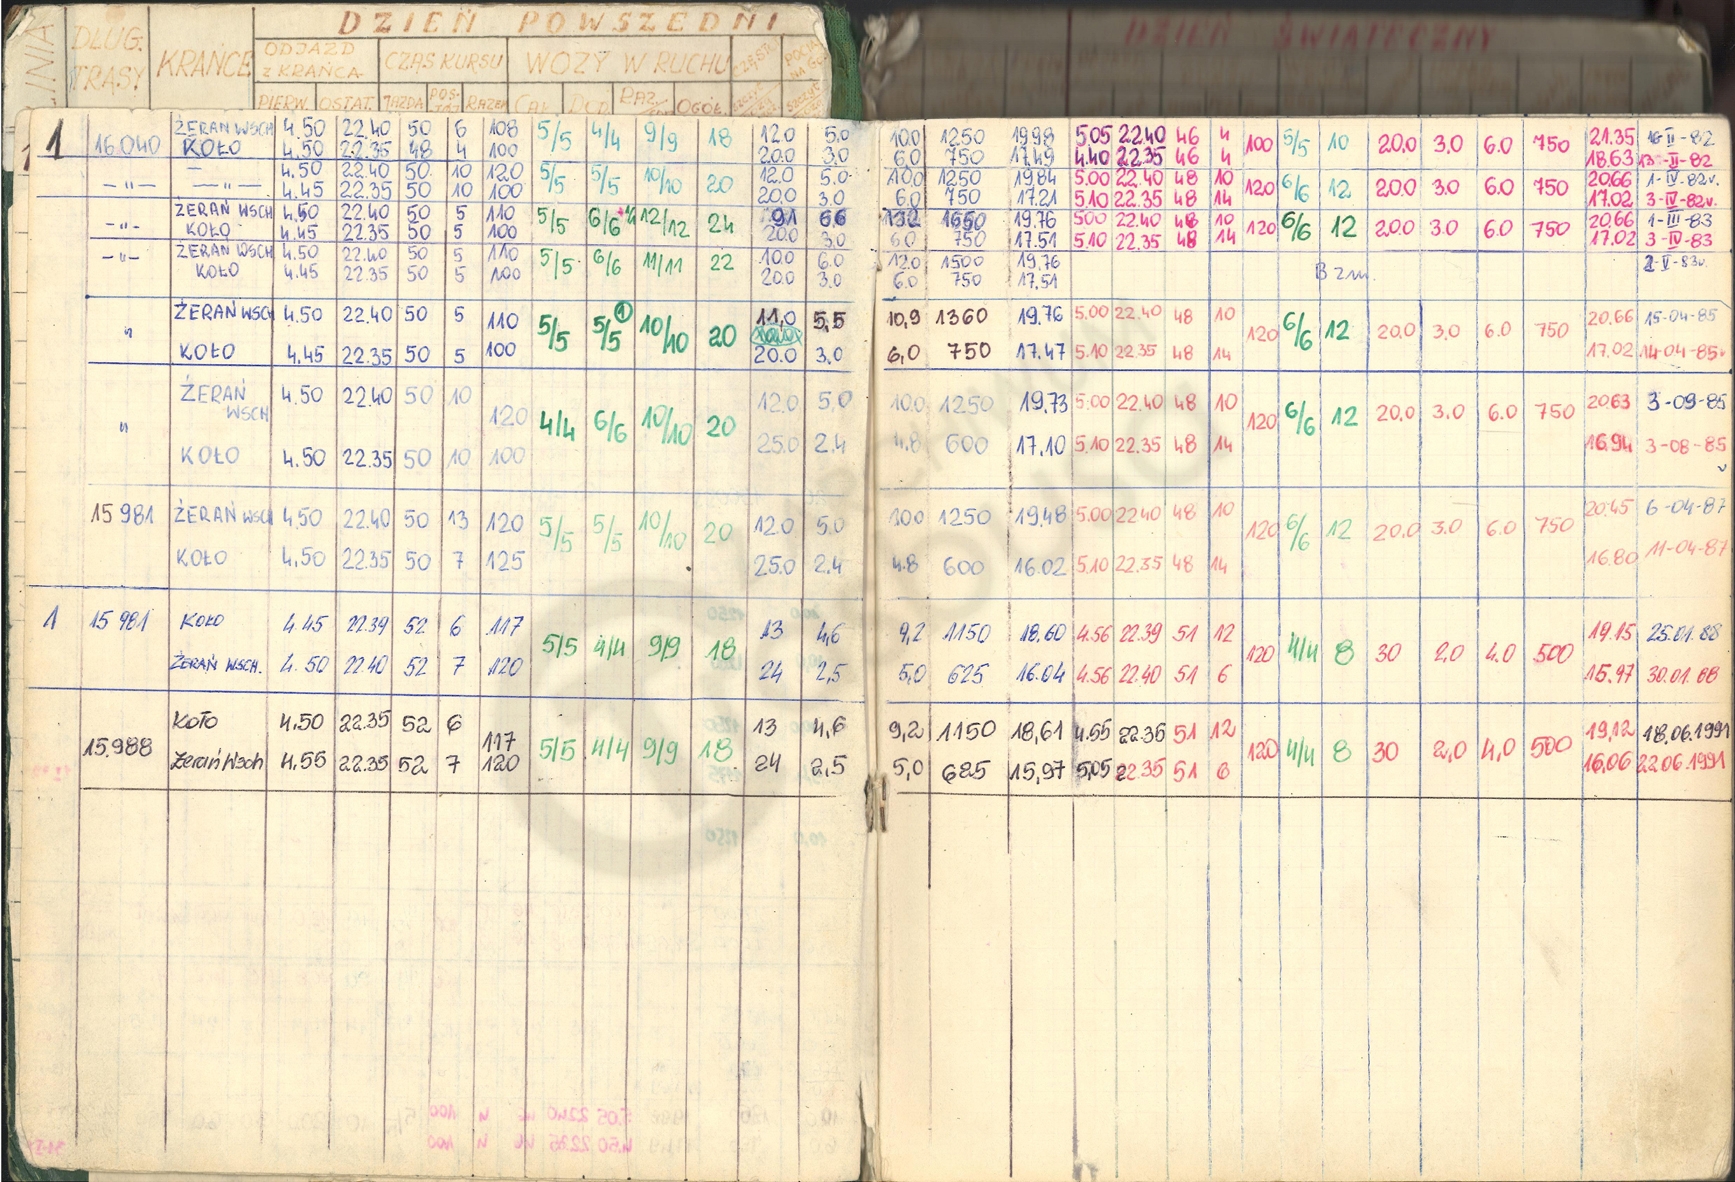 DZIEŃ POWSZEDNI DZIEŃ ŚWIĄTECZNY
LINIA DŁUG. TRASY KRAŃCE ODJAZD Z KRAŃCA CZAS KURSU WOZY W RUCHU
PIERW. OSTAT. JAZDA POSTÓJ RAZEM CAŁ. DOD. RAZ. OGÓŁ.
1 16.040 ŻERAŃ WSCH 4.50 22.40 50 6 108 5/5 4/4 9/9 18 12.0 5.0 10.0 1250 19.98 5.05 22.40 46 4 100 5/5 10 20.0 3.0 6.0 750 21.35 16-II-82
KOŁO 4.50 22.35 48 4 100 20.0 3.0 6.0 750 17.49 4.40 22.35 46 4 18.63 13-II-82
—"— — 4.50 22.40 50 10 120 5/5 5/5 10/10 20 12.0 5.0 10.0 1250 19.84 5.00 22.40 48 10 120 6/6 12 20.0 3.0 6.0 750 20.66 1-IV-82r.
—"— 4.45 22.35 50 10 100 20.0 3.0 6.0 750 17.21 5.10 22.35 48 14 17.02 3-IV-82r.
—"— ŻERAŃ WSCH 4.50 22.40 50 5 110 5/5 6/6 12/12 24 9.1 6.6 13.2 1650 19.76 5.00 22.40 48 10 120 6/6 12 20.0 3.0 6.0 750 20.66 1-III-83
KOŁO 4.45 22.35 50 5 100 20.0 3.0 6.0 750 17.51 5.10 22.35 48 14 17.02 3-IV-83
—"— ŻERAŃ WSCH 4.50 22.40 50 5 110 5/5 6/6 11/11 22 10.0 6.0 12.0 1500 19.76 B zm. 2-V-83r.
KOŁO 4.45 22.35 50 5 100 20.0 3.0 6.0 750 17.51
" ŻERAŃ WSCH 4.50 22.40 50 5 110 5/5 5/5 1 10/10 20 11,0 5,5 10,9 1360 19.76 5.00 22.40 48 10 120 6/6 12 20.0 3.0 6.0 750 20.66 15-04-85
KOŁO 4.45 22.35 50 5 100 20.0 3.0 6,0 750 17.47 5.10 22.35 48 14 17.02 14-04-85r
" ŻERAŃ WSCH 4.50 22.40 50 10 120 4/4 6/6 10/10 20 12.0 5,0 10.0 1250 19.73 5.00 22.40 48 10 120 6/6 12 20.0 3.0 6.0 750 20.63 3-09-85
KOŁO 4.50 22.35 50 10 100 25.0 2.4 4.8 600 17.10 5.10 22.35 48 14 16.94 3-08-85
15 981 ŻERAŃ WSCH 4.50 22.40 50 13 120 5/5 5/5 10/10 20 12.0 5.0 10.0 1250 19.48 5.00 22.40 48 10 120 6/6 12 20.0 3.0 6.0 750 20.45 6-04-87
KOŁO 4.50 22.35 50 7 125 25.0 2.4 4.8 600 16.02 5.10 22.35 48 14 16.80 11-04-87
1 15 981 KOŁO 4.45 22.39 52 6 117 5/5 4/4 9/9 18 13 4,6 9,2 1150 18.60 4.56 22.39 51 12 120 4/4 8 30 2,0 4.0 500 19.15 25.01.88
ŻERAŃ WSCH. 4.50 22.40 52 7 120 24 2,5 5,0 625 16.04 4.56 22.40 51 6 15.97 30.01.88
15.988 Koło 4.50 22.35 52 6 117 5/5 4/4 9/9 18 13 4,6 9,2 1150 18,61 4.55 22.36 51 12 120 4/4 8 30 2,0 4,0 500 19,12 18.06.1991
Żerań Wsch 4,55 22.35 52 7 120 24 2,5 5,0 625 15,97 5,05 22.35 51 6 16,06 22.06.1991